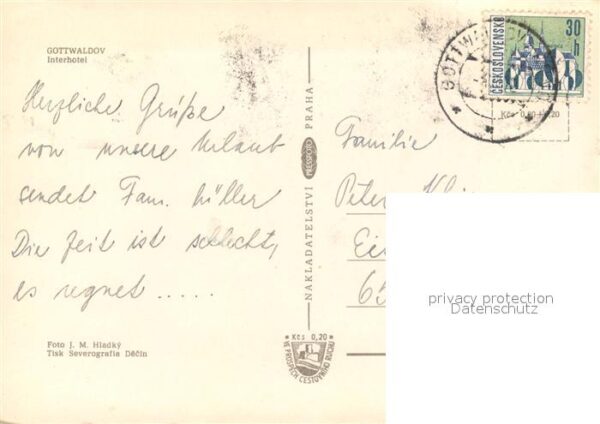 GOTTWALDOV
Interhotel
Herzliche Grüße
von unsere Urlaub
sendet Fam. Müller
Die Zeit ist schlecht,
es regnet .....
Foto J. M. Hladký
Tisk Severografia Děčín
NAKLADATELSTVÍ PRESSFOTO PRAHA
Kčs 0,20
VE PROSPĚCH CESTOVNÍHO RUCHU
GOTTWALDOV
ČESKOSLOVENSKO
30 h
Kčs 0,30+0,20
Familie
Peter
65
privacy protection
Datenschutz